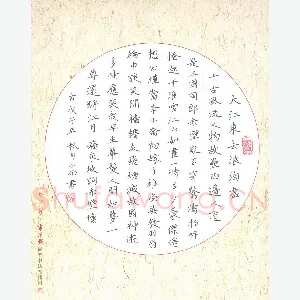 大江東去浪淘盡
千古風流人物故壘西邊人道
是三國周郎赤壁亂石穿空驚濤拍岸
捲起千堆雪江山如畫一時多少豪傑遙
想公瑾當年小喬初嫁了雄姿英發羽扇
綸巾談笑間檣櫓灰飛煙滅故國神遊
多情應笑我早生華髮人間如夢一
尊還酹江月
Shufawang.CN